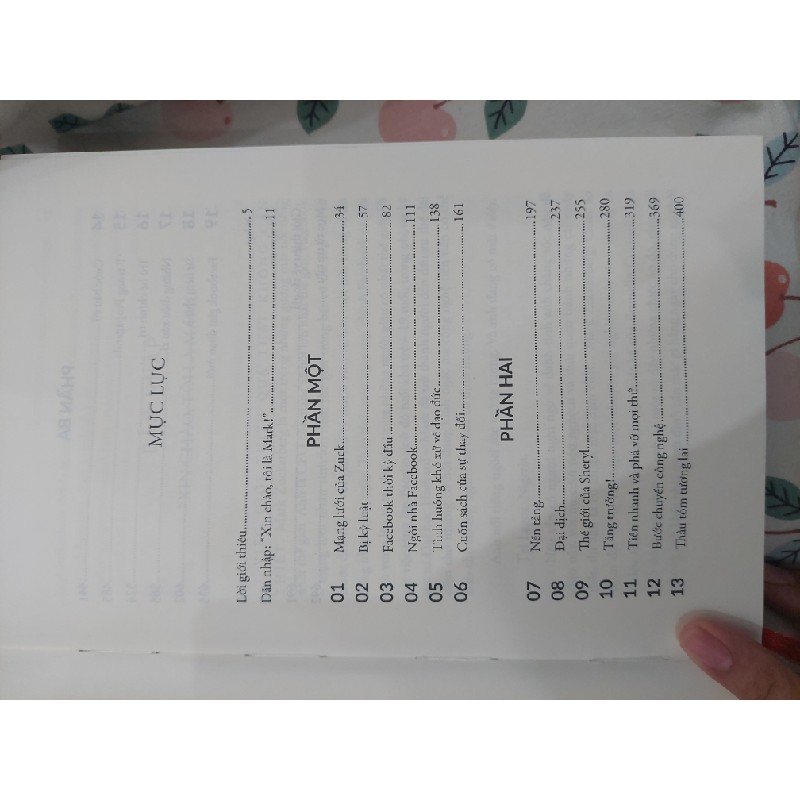 MỤC LỤC
Lời giới thiệu.......5
Dẫn nhập: “Xin chào, tôi là Mark!”.......11
PHẦN MỘT
01 Mạng lưới của Zuck.......34
02 Bị kỷ luật.......57
03 Facebook thời kỳ đầu.......82
04 Ngôi nhà Facebook.......111
05 Tình huống khó xử về đạo đức.......138
06 Cuốn sách của sự thay đổi.......161
PHẦN HAI
07 Nền tảng.......197
08 Đại dịch.......237
09 Thế giới của Sheryl.......255
10 Tăng trưởng!.......280
11 Tiến nhanh và phá vỡ mọi thứ.......319
12 Bước chuyển công nghệ.......369
13 Thâu tóm tương lai.......400
PHẦN BA